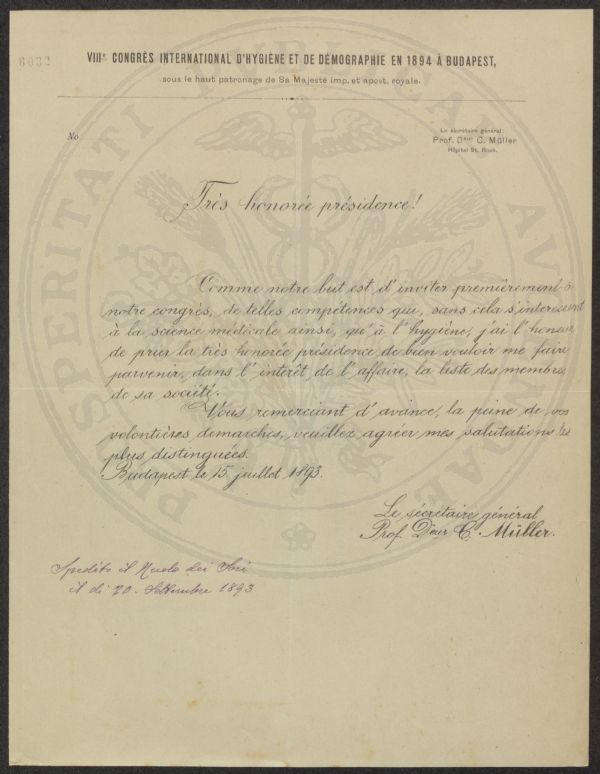 6032
VIIIe CONGRÈS INTERNATIONAL D'HYGIÈNE ET DE DÉMOGRAPHIE EN 1894 À BUDAPEST,
sous le haut patronage de Sa Majesté imp. et apost. royale.
No
Le secrétaire général:
Prof. Dour C. Müller
Hôpital St. Roch.
Très honorée présidence!
Comme notre but est d'inviter premièrement à
notre congrès, de telles compétences qui, sans cela s'interessent
à la science médicale ainsi, qu'à l'hygiène, j'ai l'honneur
de prier la très honorée présidence de bien vouloir me faire
parvenir, dans l'intérêt de l'affaire, la liste des membres
de sa société.
Vous remerciant d'avance, la peine de vos
volontières demarches, veuillez agréer mes salutations les
plus distinguées.
Budapest le 15. juillet 1893.
Le secrétaire général
Prof. Dour C. Müller.
Spedito il Ruolo dei Soci
il di 20. Settembre 1893
PROSPERITATI PUBLICAE AUGENDAE